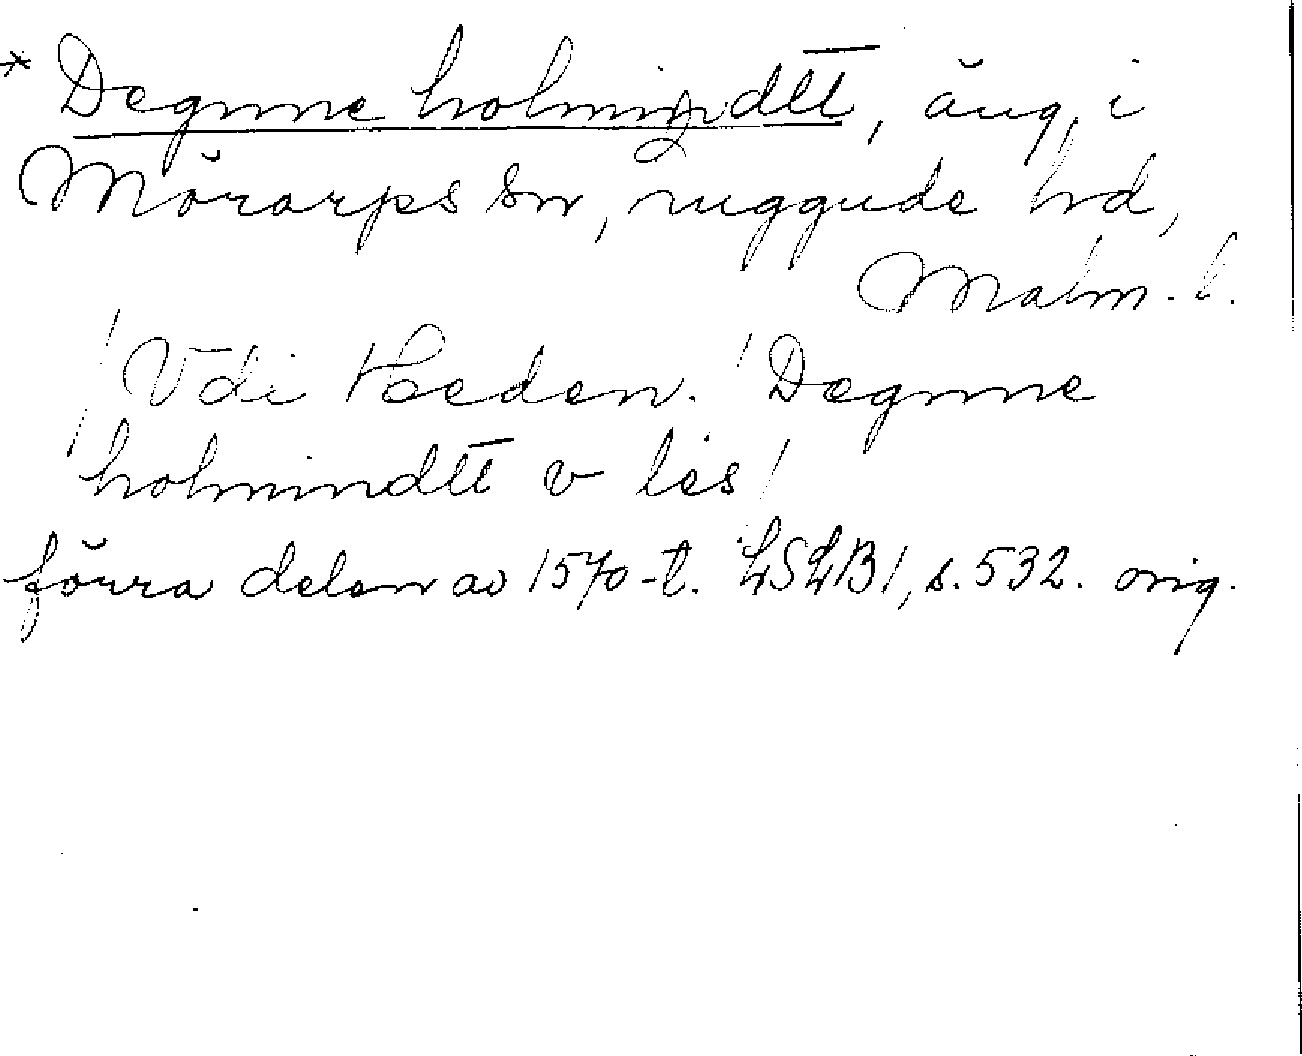 * Degnne holmindtt̅, äng, i
Mörarps sn, Luggude hd,
Malm. l.
/ Vdi Heden. / Degnne
holmindtt̅ v les /
förra delen av 1570-t. LSLB 1, s. 532. orig.